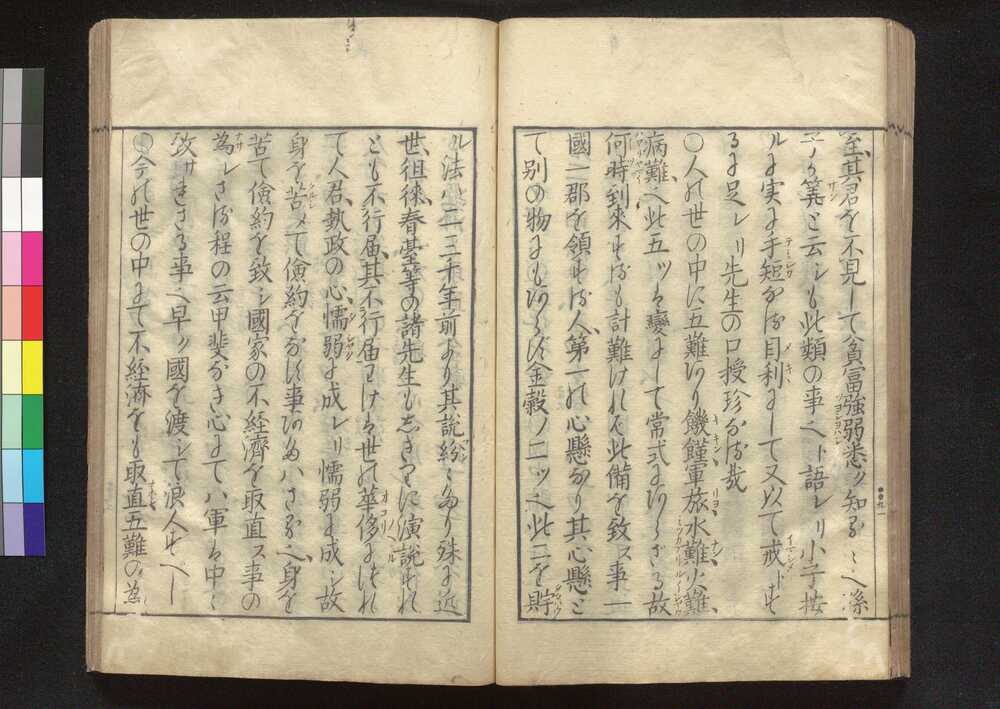 至其君を不見して貧富強弱悉ッ知るゝ〻孫
子ヵ筭と云シも此類の事ヘト語レリ小子按
ルに実に手短なる目利にして又以て戒ト
るに足レリ先生の口授珍なる哉
〇人の世の中に五難あり饑饉軍旅水難火難
病難〻此五ッは變にして常式にあらざる故
何時到來するも計難けれ𪜈此備を致ス事一
國一郡を領する人第一の心懸なり其心懸ニ
て別の物にもあらず金穀ノ二ッ〻此二を貯
ル法〻二三十年前より其説紛ゝたり殊に近
世徂徠春臺等の諸先生もしきりに演説すれ
とも不行届其不行届わけは世の華侈につれ
て人君執政の心懦弱に成レリ懦弱に成シ故
身を苦メて儉約をなす事あたハさる〻身を
苦て儉約を致シ國家の不経濟を取直ス事の
為レさる程の云甲斐なき心にてハ軍は中〻
致サれさる事〻早ッ國を渡シて浪人すべし
〇今の世の中にて不經濟をも取直五難の為